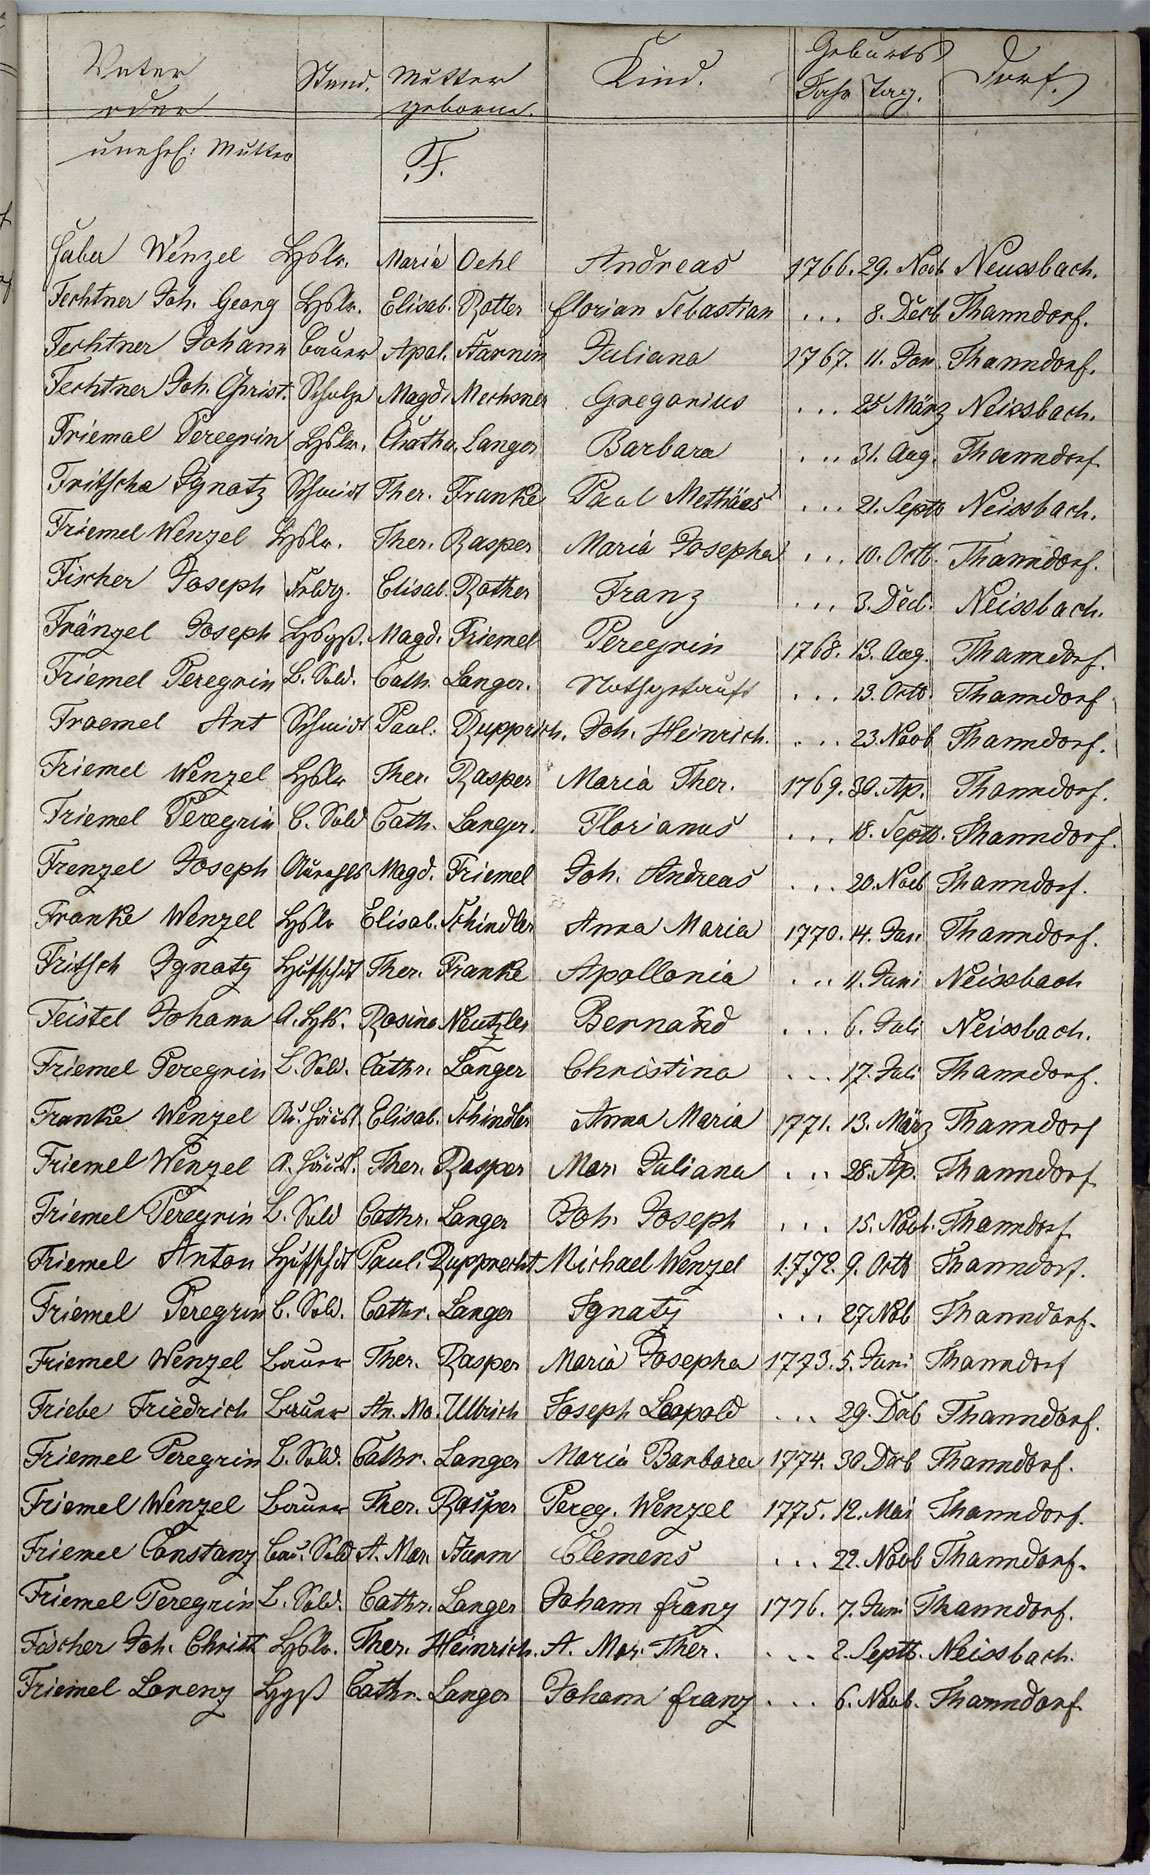 Vater Stand. Mutter Kind. Geburts Dorf.
oder geborne. Jahr Tag.
unehel: Mutter F.
Faber Wenzel Hslr. Maria Oehl Andreas 1766. 29. Novb Neussbach.
Fechtner Joh. Georg Hslr. Elisab. Rotter Florian Sebastian ... 8. Decb Thanndorf.
Fechtner Johann Bauer Apol. Sturnin Juliana 1767. 11. Jan. Thanndorf.
Fechtner Joh. Christ. Scholze Magd. Mechsner Gregorius ... 25 März Neissbach.
Friemal Peregrin Hslr. Cathr. Langer Barbara ... 31. Aug. Thanndorf.
Fritsche Ignatz Schmidt Ther. Franke Paul Mathäes ... 21. Septb Neissbach.
Friemel Wenzel Hslr. Ther. Rasper Maria Josepha ... 10. Octb. Thanndorf.
Fischer Joseph Feldg. Elisab. Rother Franz ... 3. Decb. Neissbach.
Fränzel Joseph Hsgß. Magd. Friemel Peregrin 1768. 13. Aug. Thanndorf.
Friemel Peregrin B. Sold. Cath. Langer. Nothgetauft ... 13. Octb. Thanndorf
Fraemel Ant Schmidt Paul. Rupprich. Joh. Heinrich. ... 23. Novb Thanndorf.
Friemel Wenzel Hslr Ther. Rasper Maria Ther. 1769. 30. Ap. Thanndorf.
Friemel Peregrin B. Sold Cath. Langer. Florianus ... 18. Septb. Thanndorf.
Frenzel Joseph Magd. Friemel Joh. Andreas ... 20. Novb Thanndorf.
Franke Wenzel Hslr Elisab. Schindler Anna Maria 1770. 14. Jan Thanndorf.
Fritsch Ignatz Hufschdt Ther. Franke Apollonia ... 11. Juni Neissbach
Feistel Johann A. Hslr. Rosina Neutzler Bernard ... 6. Juli Neissbach.
Friemel Peregrin B. Sold. Cathr. Langer Christina ... 17. Juli Thanndorf.
Franke Wenzel Au. Häusl. Elisab. Schindler Anna Maria 1771. 13. März Thanndorf
Friemel Wenzel A. Häusl. Ther. Rasper Mar. Juliana ... 28. Ap. Thanndorf
Friemel Peregrin B. Sold Cathr. Langer Joh. Joseph ... 15. Novb. Thanndorf
Friemel Anton Hufschdt Paul. Rupprecht Michael Wenzel 1772. 9. Octb Thanndorf.
Friemel Peregrin B. Sold. Cathr. Langer Ignatz ... 27 Nob Thanndorf.
Friemel Wenzel Bauer Ther. Rasper Maria Josepha 1773. 5. Juni Thanndorf
Friebe Friedrich Bauer An. Ma. Ullrich Joseph Leopold ... 29. Decb Thanndorf.
Friemel Peregrin B. Sold. Cathr. Langer Maria Barbara 1774. 30 Decb Thanndorf.
Friemel Wenzel Bauer Ther. Rasper Pereg. Wenzel 1775. 12. Mai Thanndorf.
Friemel Constanz Bau. Sold A. Mar. Sturm Clemens ... 22. Novb Thanndorf.
Friemel Peregrin B. Sold. Cathr. Langer Johann Franz 1776. 7. Juni Thanndorf.
Fischer Joh. Christ Hslr. Ther. Heinrich. A. Mar. Ther. ... 2. Septb. Neissbach.
Friemel Lorenz Hsgß Cathr. Langer Johann Franz ... 6. Novb. Thanndorf